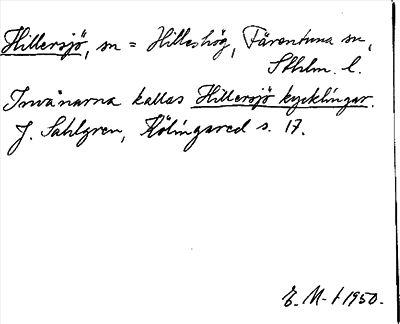 Hillersjö, sn = Hilleshög, Färentuna sn,
Sthlm. l.
Invånarna kallas Hillersjö kycklingar.
J. Sahlgren, Kölingared s. 17.
E. M-t 1950.